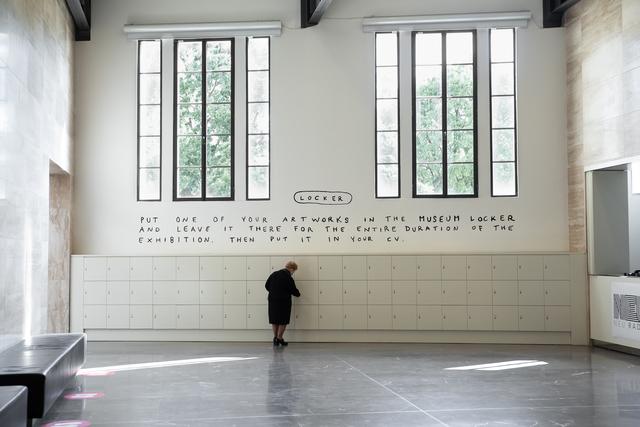 LOCKER
PUT ONE OF YOUR ARTWORKS IN THE MUSEUM LOCKER
AND LEAVE IT THERE FOR THE ENTIRE DURATION OF THE
EXHIBITION. THEN PUT IT IN YOUR CV.